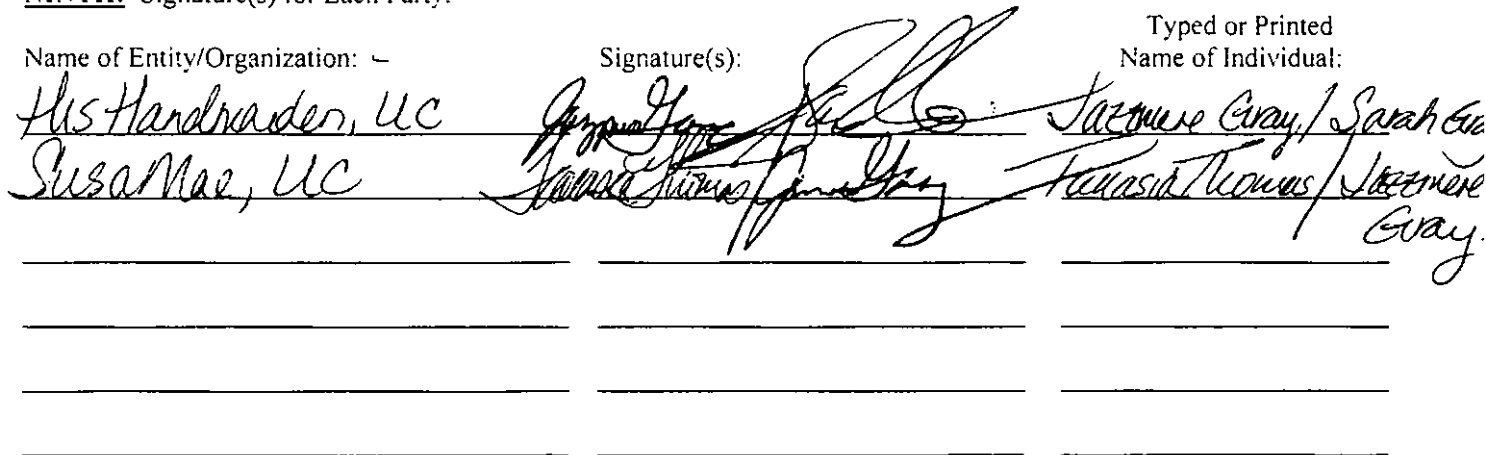 Signature(s) for Each Party:
Typed or Printed
Name of Entity/Organization: Signature(s): Name of Individual:
His Handmaiden, LLC Jazmere Gray / Sarah Gra
SusaMae, LLC Tanasia Thomas / Jazzmere
Gray.